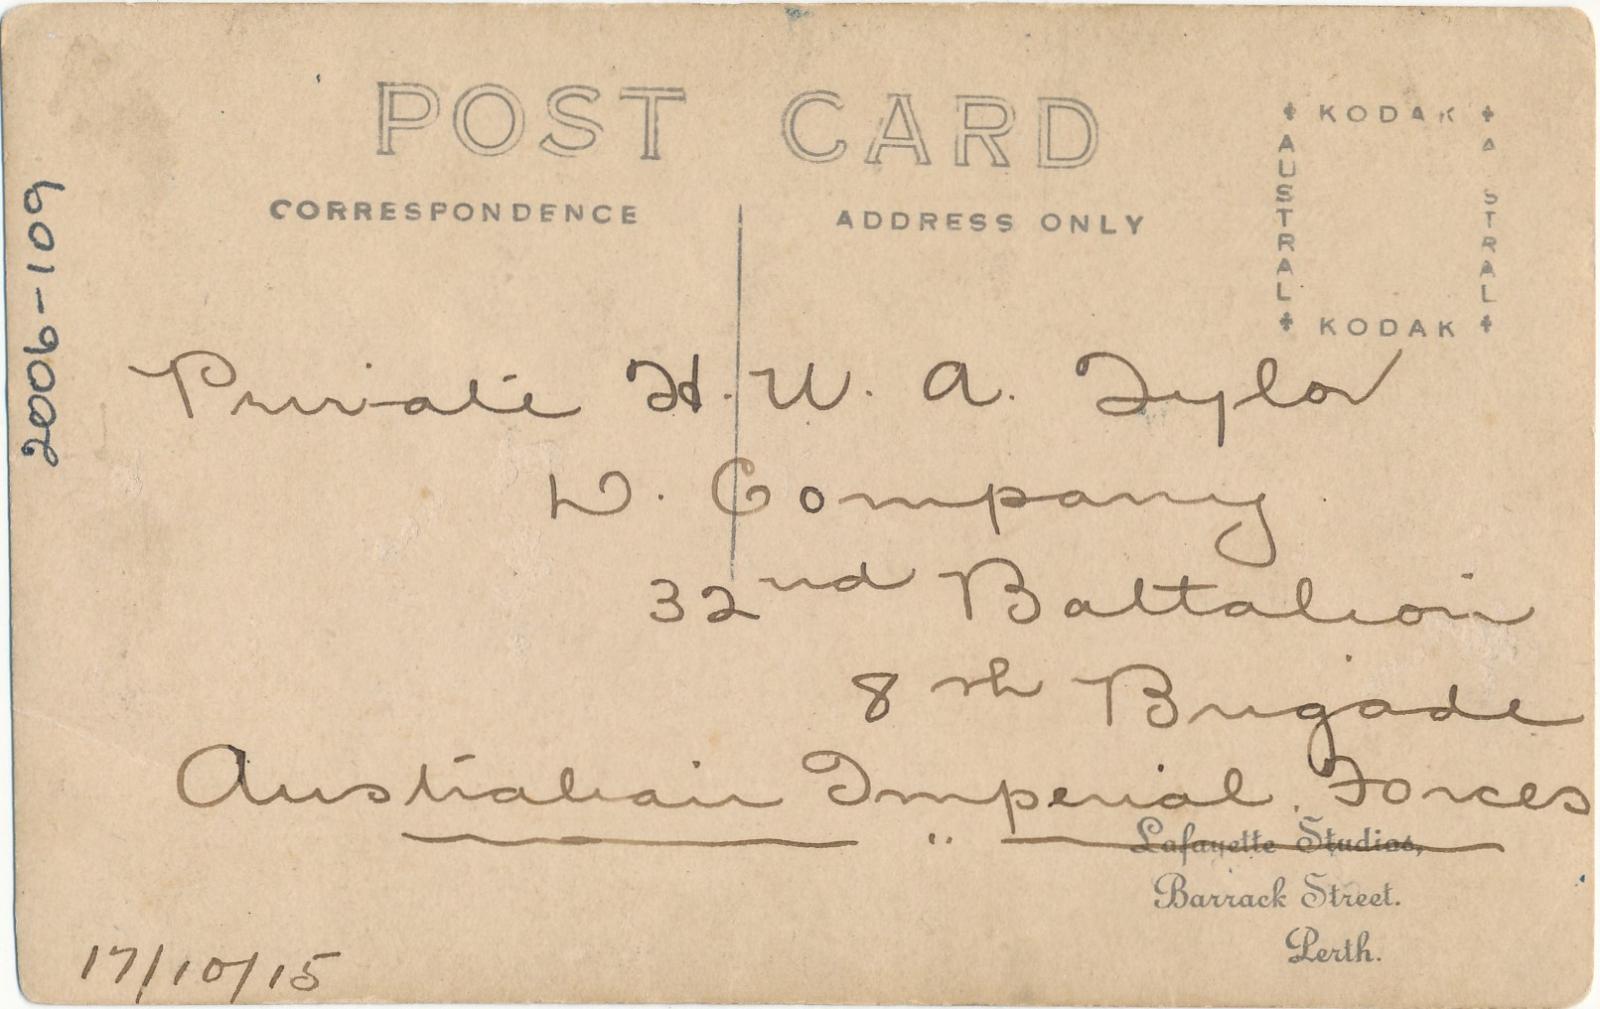 POST CARD
CORRESPONDENCE
ADDRESS ONLY
KODAK
AUSTRAL
A STRAL
KODAK
2006-109
Private H. W. A. Tylor
D. Company
32nd Battalion
8th Brigade
Australian Imperial Forces
Lafayette Studios,
Barrack Street.
Perth.
17/10/15